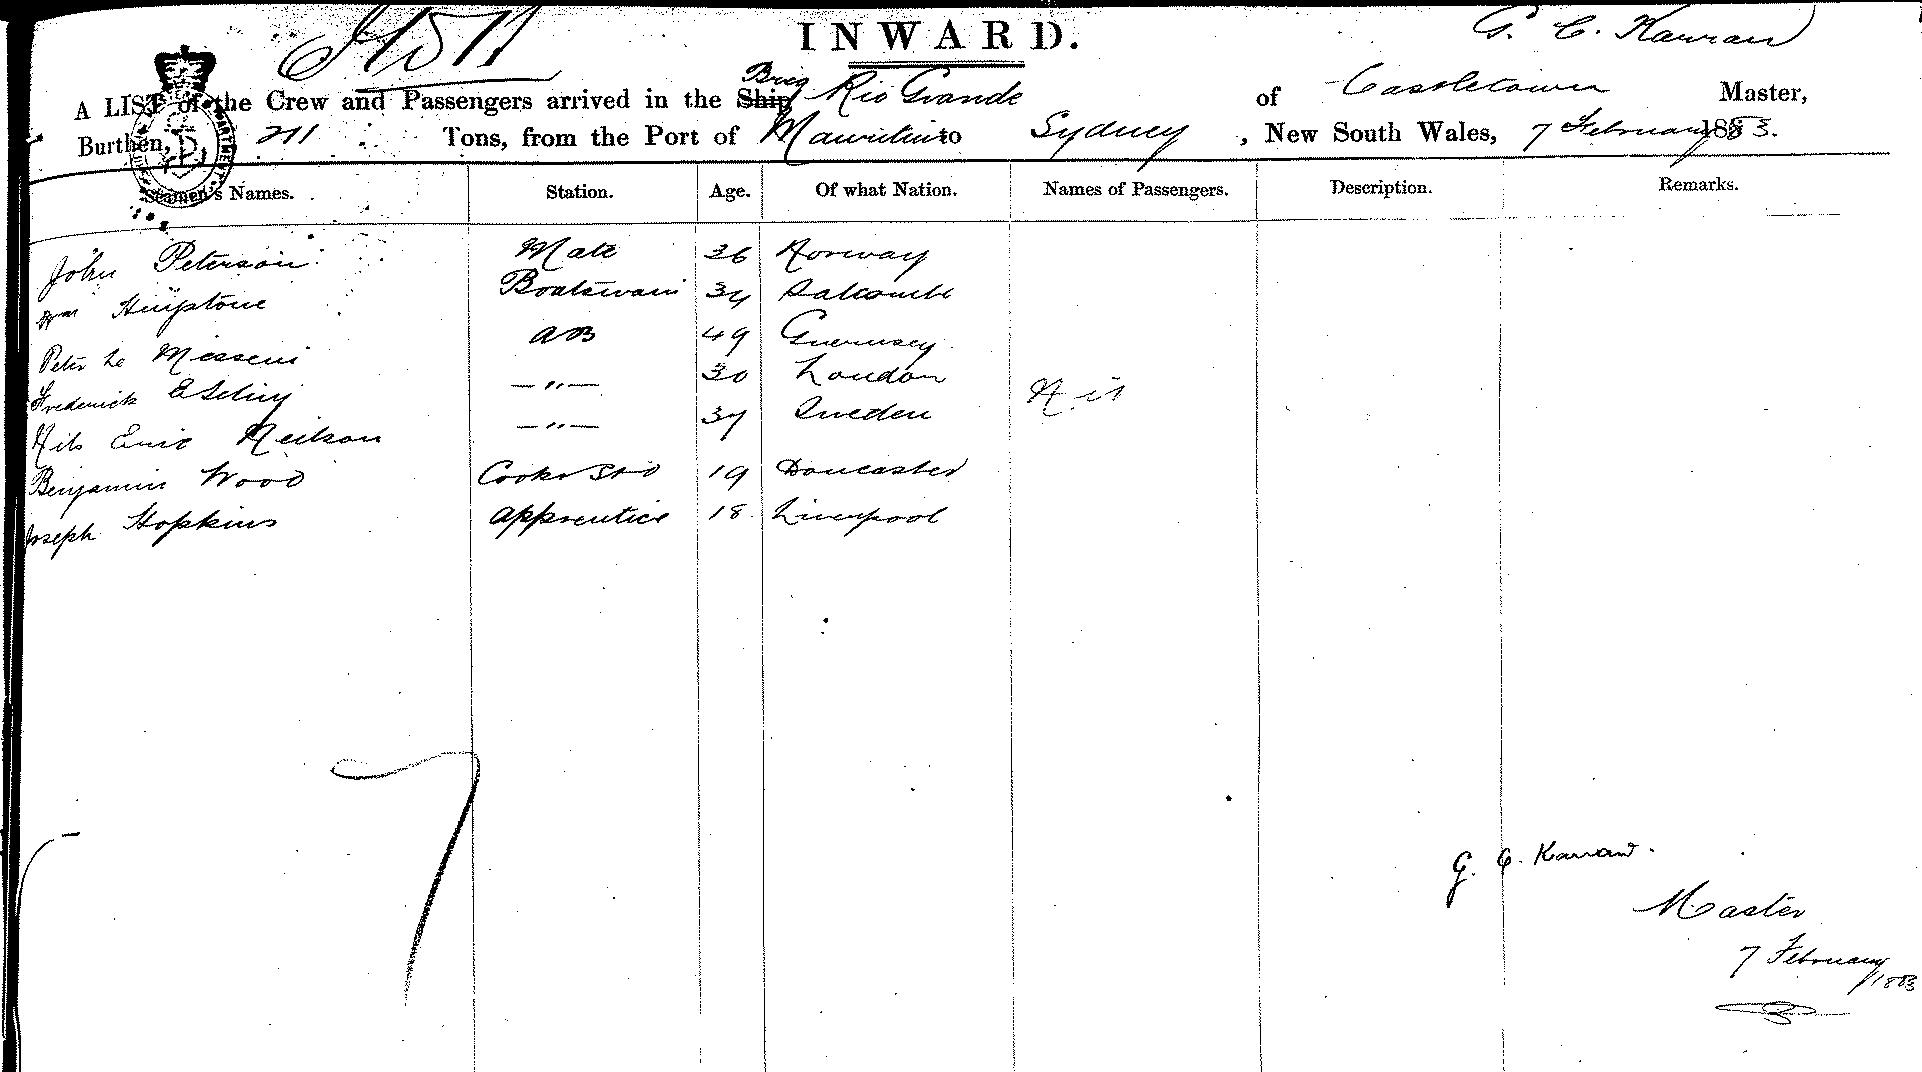 INWARD.
G. C. Karran
Brig
A LIST of the Crew and Passengers arrived in the Ship Rio Grande of Castletown Master,
Burthen, 211 Tons, from the Port of Mauritius to Sydney, New South Wales, 7 February 1883.
Seamen's Names. Station. Age. Of what Nation. Names of Passengers. Description. Remarks.
John Peterson Mate 36 Norway
Wm Hingstone Boatswain 34 Salcombe
Peter Le Messeni AB 49 Guernsey
Frederick —"— 30 London Nil
Nils Eric Neilson —"— 37 Sweden
Benjamin Wood Cook & Std 19 Doncaster
Joseph Hopkins Apprentice 18 Liverpool
7
G. C. Karran.
Master
7 February
1883